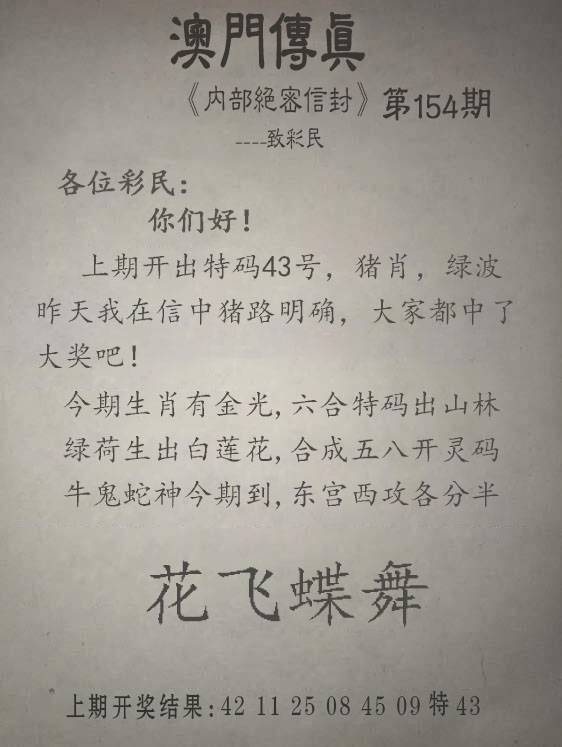 澳門傳真
《内部絕密信封》第154期
----致彩民
各位彩民：
你们好！
上期开出特码43号，猪肖，绿波
昨天我在信中猪路明确，大家都中了
大奖吧！
今期生肖有金光,六合特码出山林
绿荷生出白莲花,合成五八开灵码
牛鬼蛇神今期到,东宫西攻各分半
花飞蝶舞
上期开奖结果:42 11 25 08 45 09 特 43